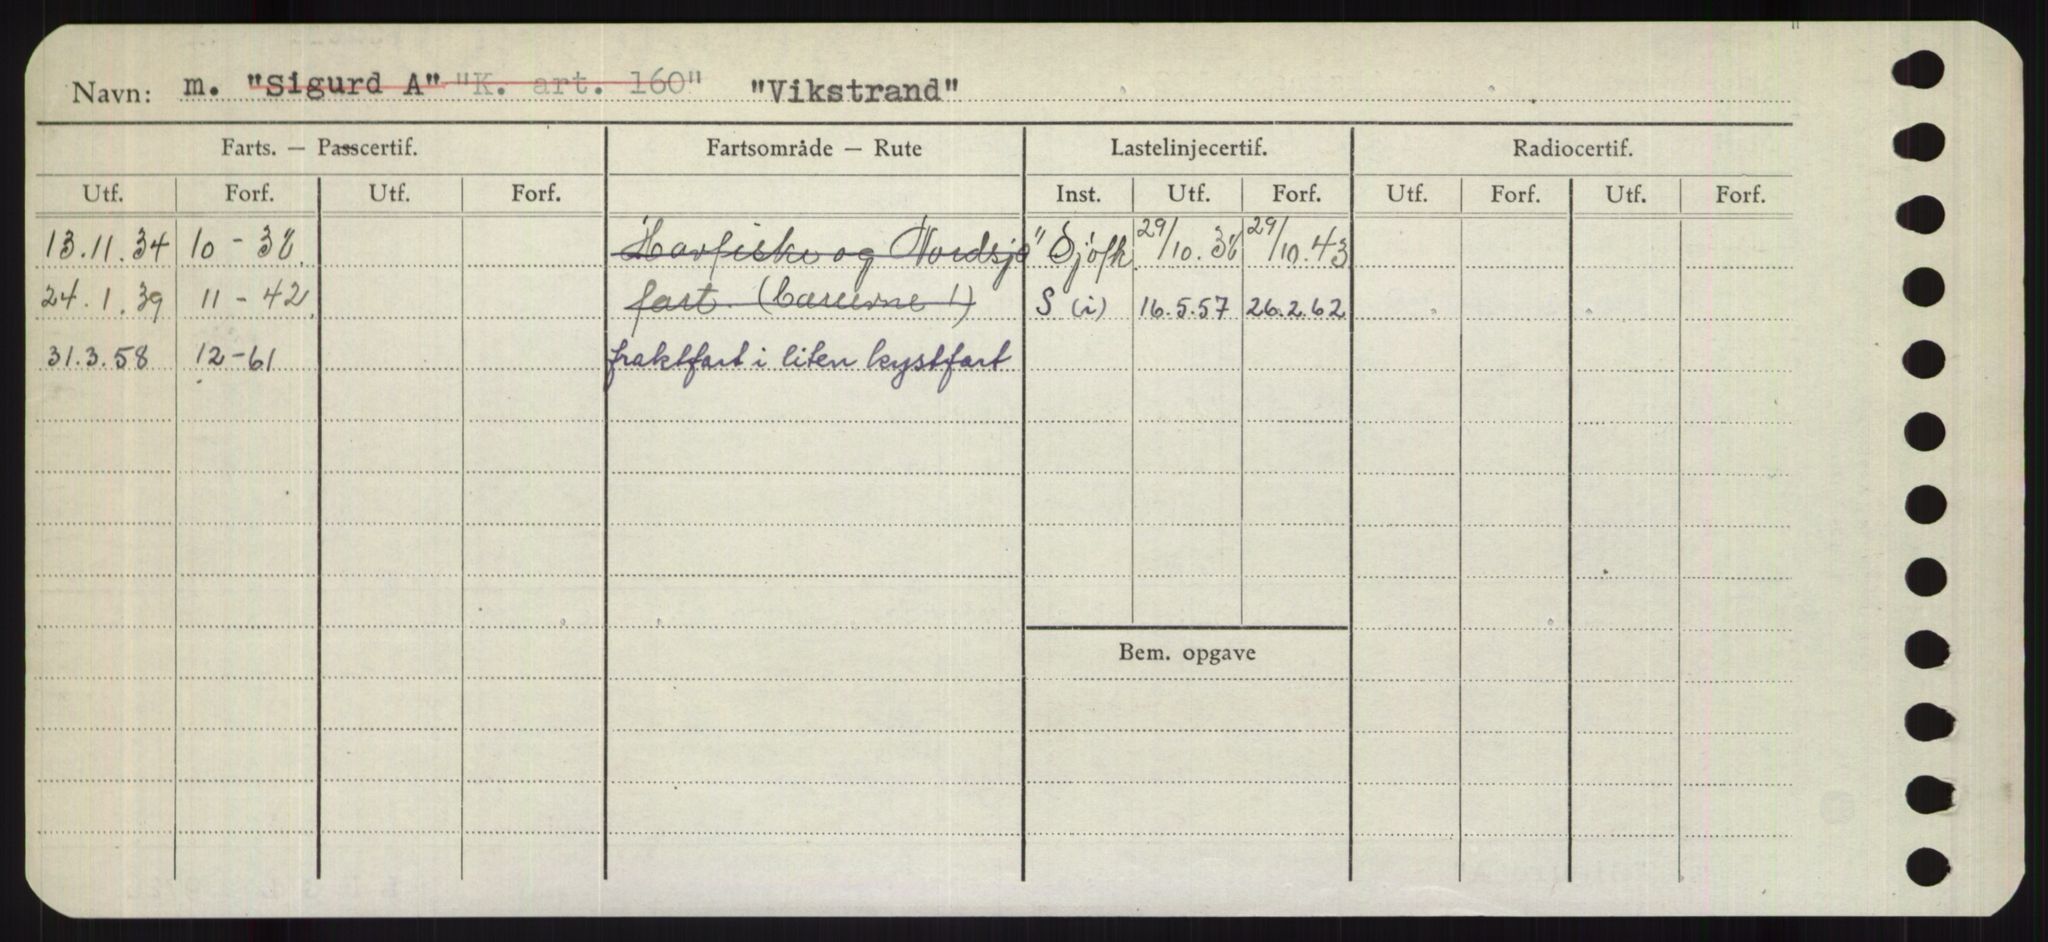 Navn: m. "Sigurd A" "K. art. 160" "Vikstrand"
Farts. — Passcertif. Fartsområde — Rute Lastelinjecertif. Radiocertif.
Utf. Forf. Utf. Forf. Inst. Utf. Forf. Utf. Forf. Utf. Forf.
13.11.34 10-38 Havfiske og Nordsjø" Sjöfk. 29/10.38 29/10.43
24.1.39 11-42 fart. S (i) 16.5.57 26.2.62
31.3.58 12-61 fraktfart i liten kystfart
Bem. opgave